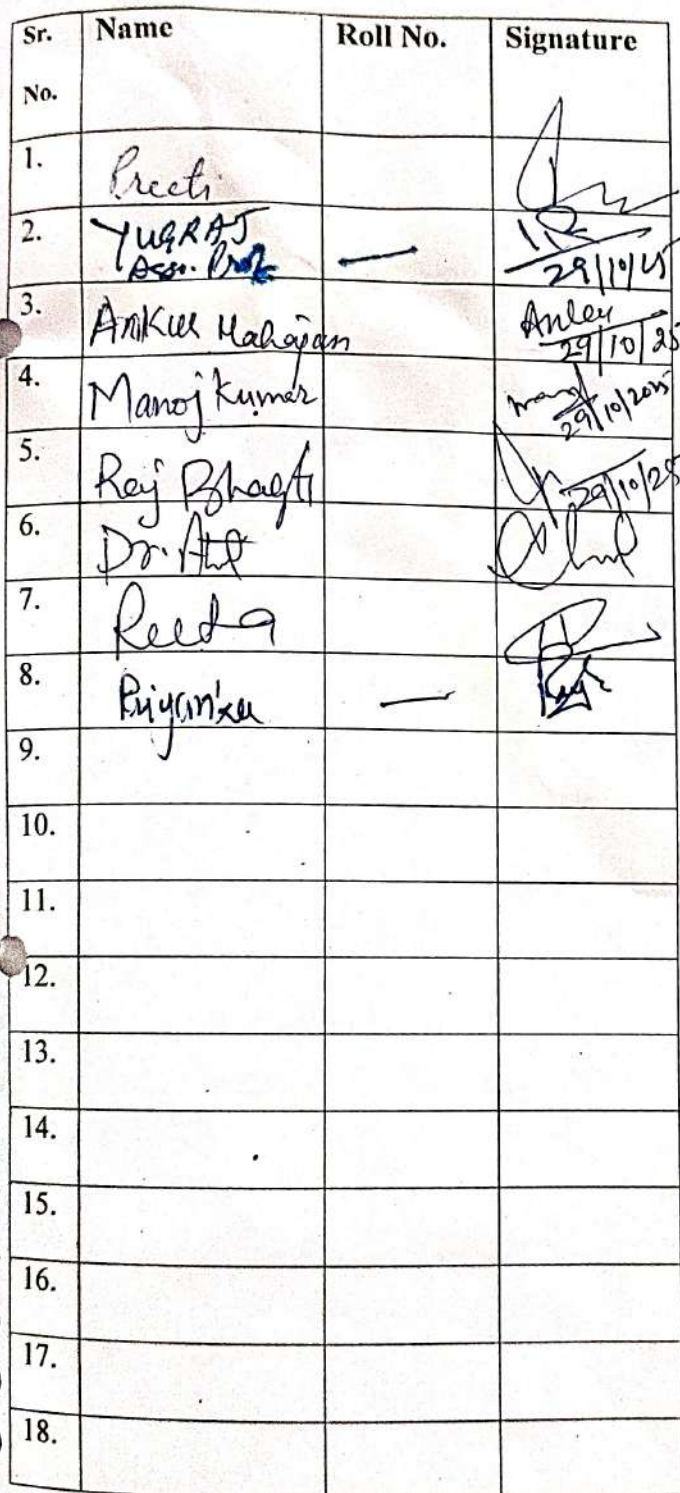 Sr. No. Name Roll No. Signature
1. Preeti
2. YUGRAJ —
Asso. Prof. 29/10/25
3. Ankur Mahajan 29/10/25
4. Manoj Kumar 29/10/2025
5. Raj 29/10/25
6. Dr.
7.
8. Priyanka —
9.
10.
11.
12.
13.
14.
15.
16.
17.
18.